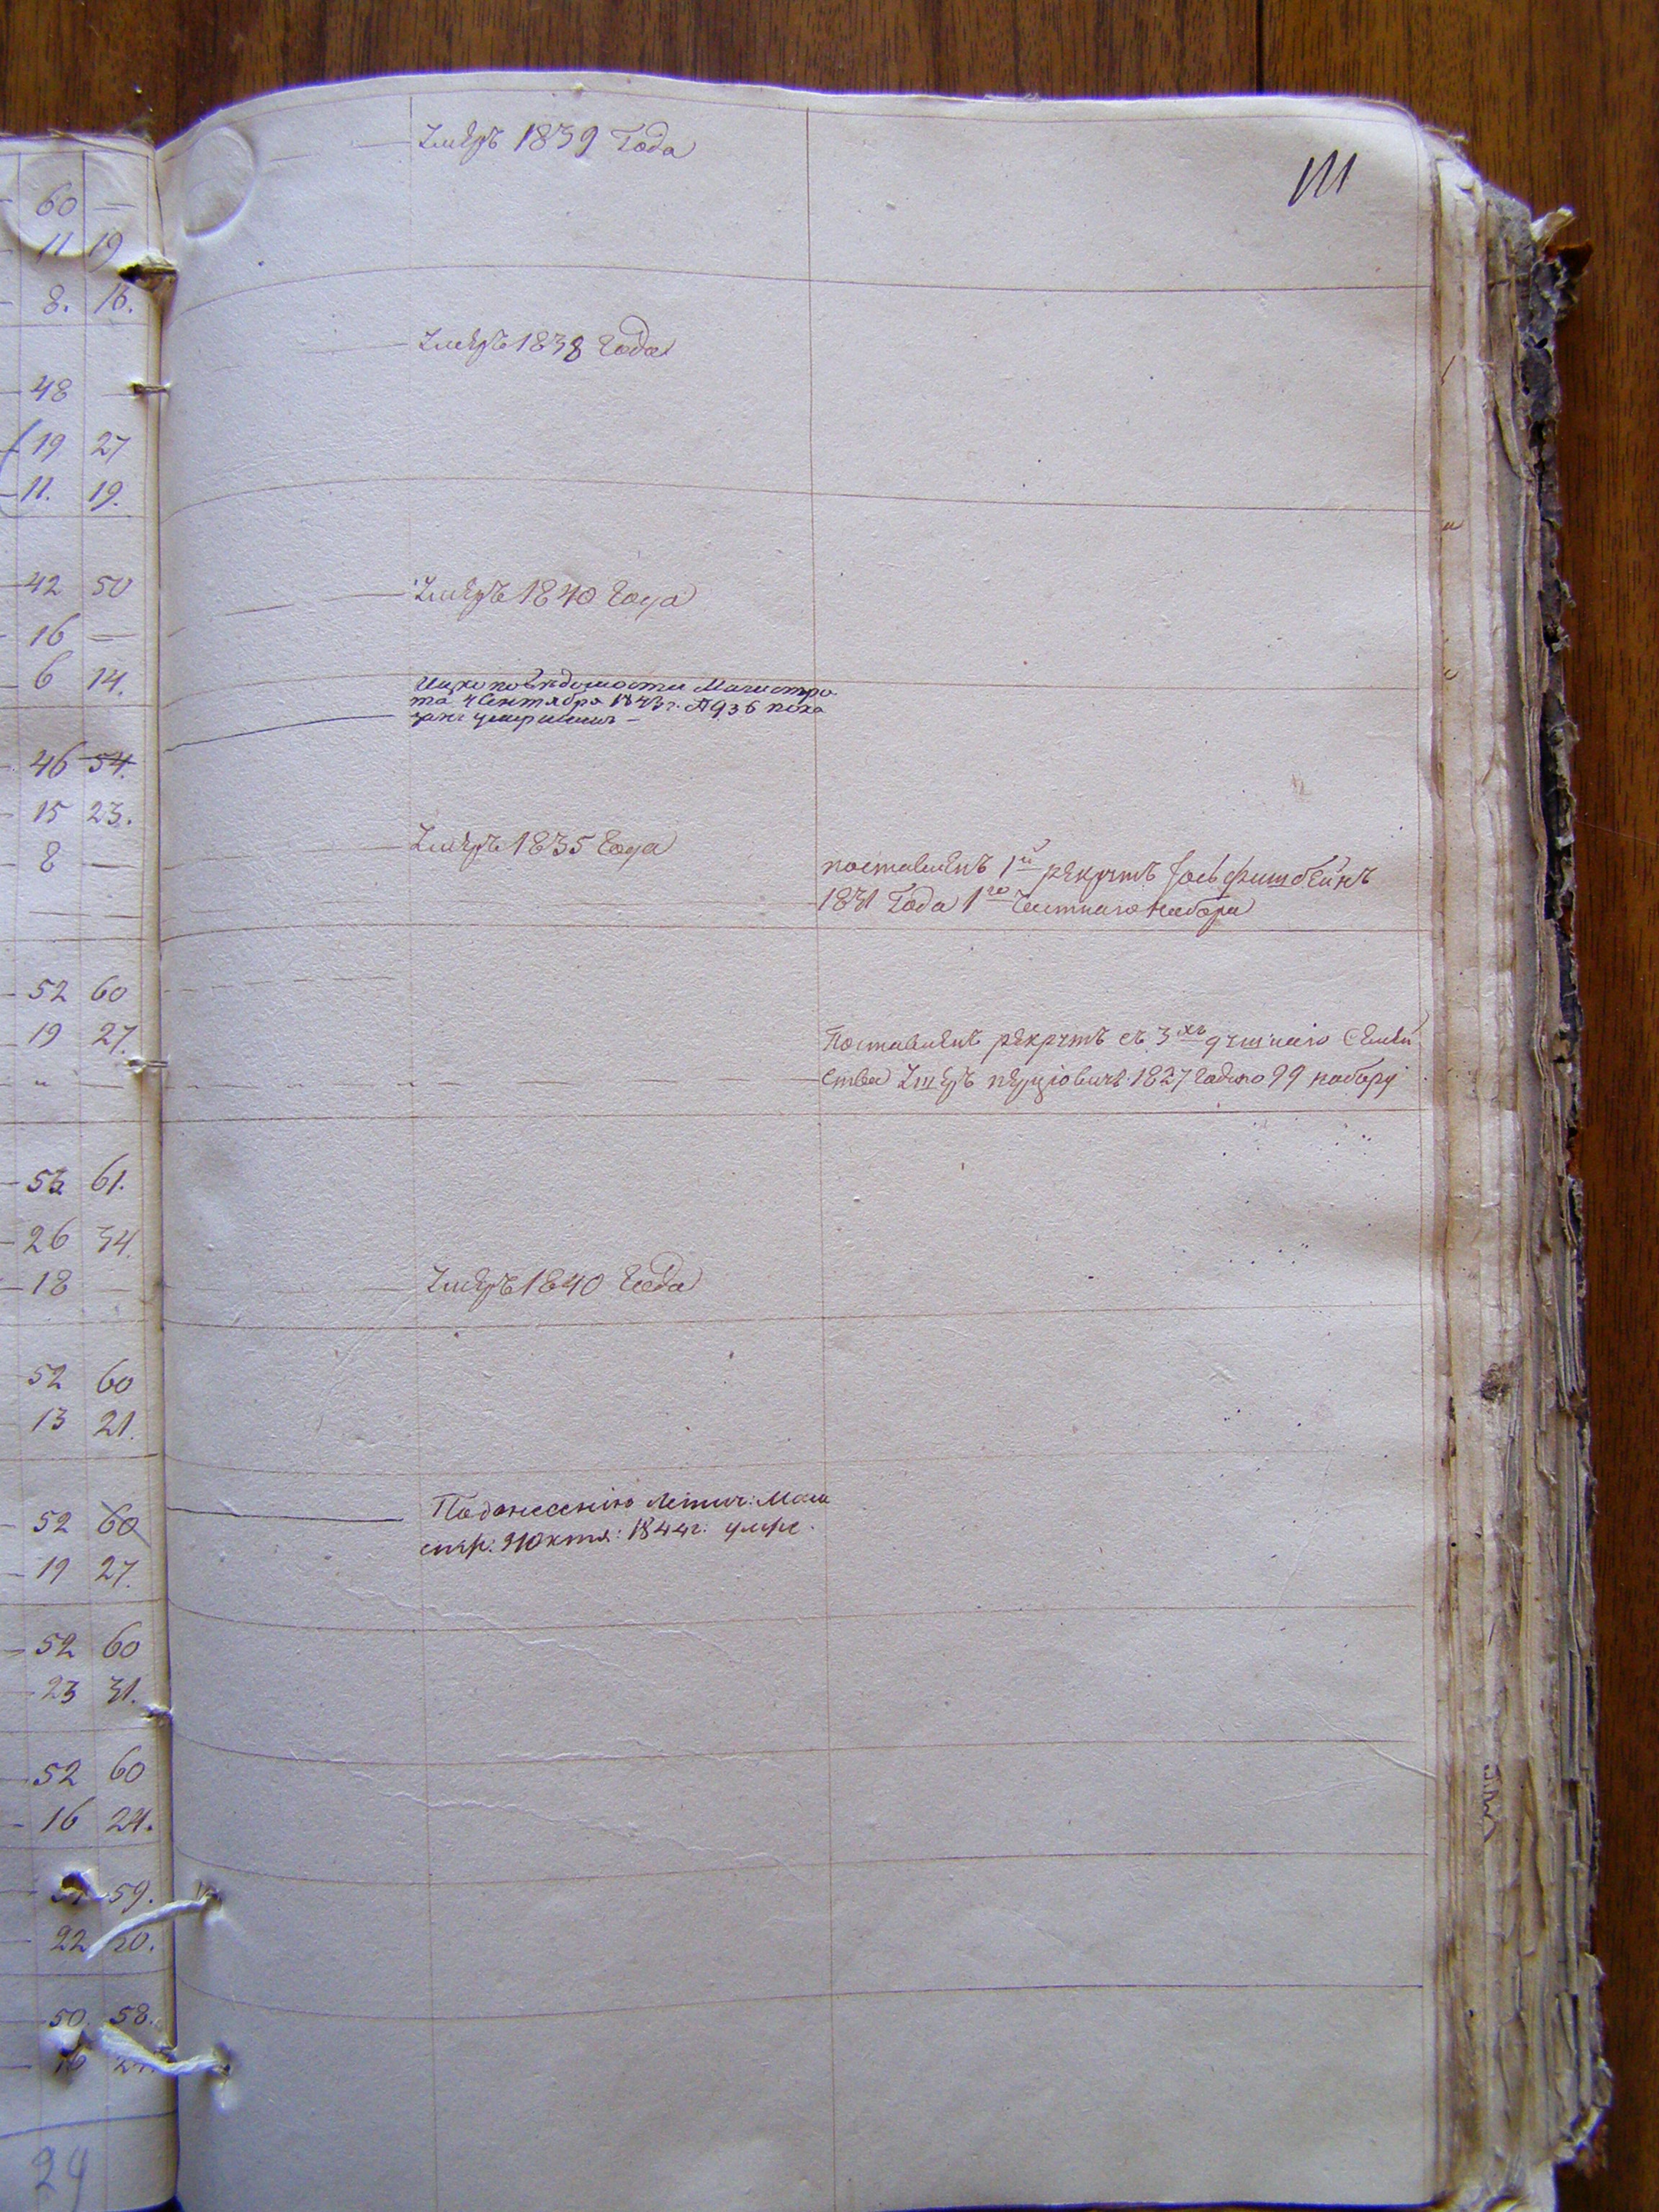 60 —
11 19
8. 16.
48 —
19 27
11. 19.
42 50
16 —
6 14.
46 54.
15 23.
8 —
52 60
19 27.
53 61.
26 34.
18 —
52 60
13 21.
52 60
19 27.
52 60
23 31.
52 60
16 24.
59.
22 30.
50. 58.
24
111
Умеръ 1839 Года
Умеръ 1838 Года
Умеръ 1840 Года
Ицко по вѣдомости Магистра-
та 4 Сентября 1843 г. № 936 пока
занъ умершимъ —
Умеръ 1835 Года
поставленъ 1й рекрутъ Іось Фишбейнъ
1831 Года 1го частнаго набора
Поставленъ рекрутъ съ 3хъ душнаго Семей
ства 1827 Года по 99 набору
Умеръ 1840 Года
По донесенію Летич: Маги
стр. 1844 г: умре.